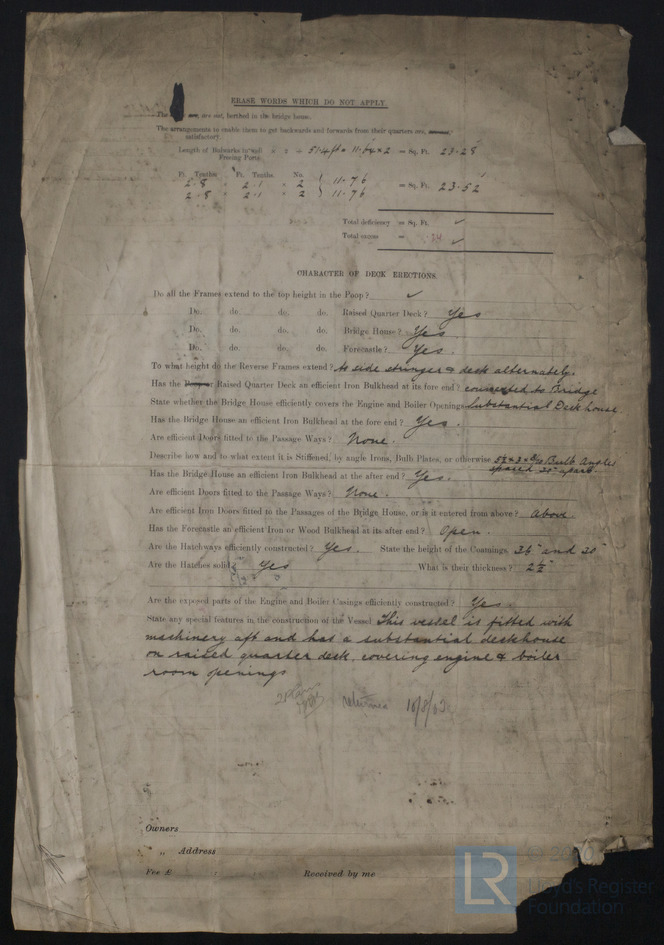 ERASE WORDS WHICH DO NOT APPLY.
The are, are not, berthed in the bridge house.
The arrangements to enable them to get backwards and forwards from their quarters are,
satisfactory.
Length of Bulwarks in well × 2 = 11.64 × 2 = Sq. Ft. 23.28
Freeing Ports
Ft. Tenths. Ft. Tenths. No.
2.8 × 2.1 × 2 } 11.76 = Sq. Ft. 23.52
2.8 × 2.1 × 2 } 11.76
Total deficiency = Sq. Ft. ✓
Total excess = .24 ✓
CHARACTER OF DECK ERECTIONS.
Do all the Frames extend to the top height in the Poop? ✓
Do. do. do. do. Raised Quarter Deck? Yes
Do. do. do. do. Bridge House? Yes
Do. do. do. do. Forecastle? Yes.
To what height do the Reverse Frames extend? to side stringer & deck alternately.
Has the Poop or Raised Quarter Deck an efficient Iron Bulkhead at its fore end? connected to Bridge
State whether the Bridge House efficiently covers the Engine and Boiler Openings Substantial Deckhouse.
Has the Bridge House an efficient Iron Bulkhead at the fore end? Yes.
Are efficient Doors fitted to the Passage Ways? None.
Describe how and to what extent it is Stiffened, by angle Irons, Bulb Plates, or otherwise Bulb Angles
spaced 30" apart.
Has the Bridge House an efficient Iron Bulkhead at the after end? Yes.
Are efficient Doors fitted to the Passage Ways? None.
Are efficient Iron Doors fitted to the Passages of the Bridge House, or is it entered from above? Above
Has the Forecastle an efficient Iron or Wood Bulkhead at its after end? Open.
Are the Hatchways efficiently constructed? Yes. State the height of the Coamings, and 30"
Are the Hatches solid? Yes What is their thickness? 2½"
Are the exposed parts of the Engine and Boiler Casings efficiently constructed? Yes.
State any special features in the construction of the Vessel This vessel is fitted with
machinery aft and has a substantial deckhouse
on raised quarter deck, covering engine & boiler
room openings
returned 10/8/03
Owners
„ Address
Fee £ Received by me
LR
Lloyd's Register
Foundation